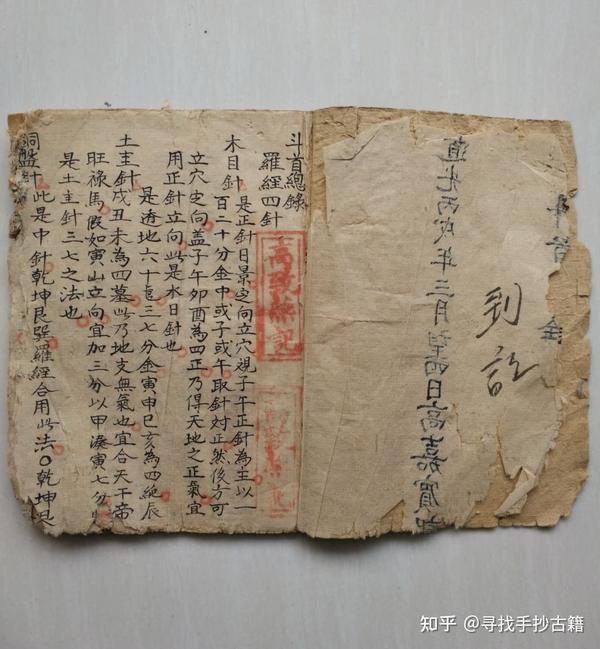 到訖
道光丙戌年三月 日高嘉賓
斗首總錄
羅經四針
木目針 是正針日景定向立穴視子午正針為主以一
百二十分金中或子或午取針対正然後方可
立穴定向盖子午卯酉為四正乃得天地之正氣宜
用正針立向此是木日針也
是透地六十 三七分金寅申巳亥為四絕辰
土主針戌丑未為四墓此乃地支無氣也宜合天干帝
旺祿馬假如寅山立向宜加三分以甲湊寅七分
是土主針三七之法也
銅盤針 此是中針乾坤艮巽羅經合用此法〇乾坤艮
知乎 @寻找手抄古籍